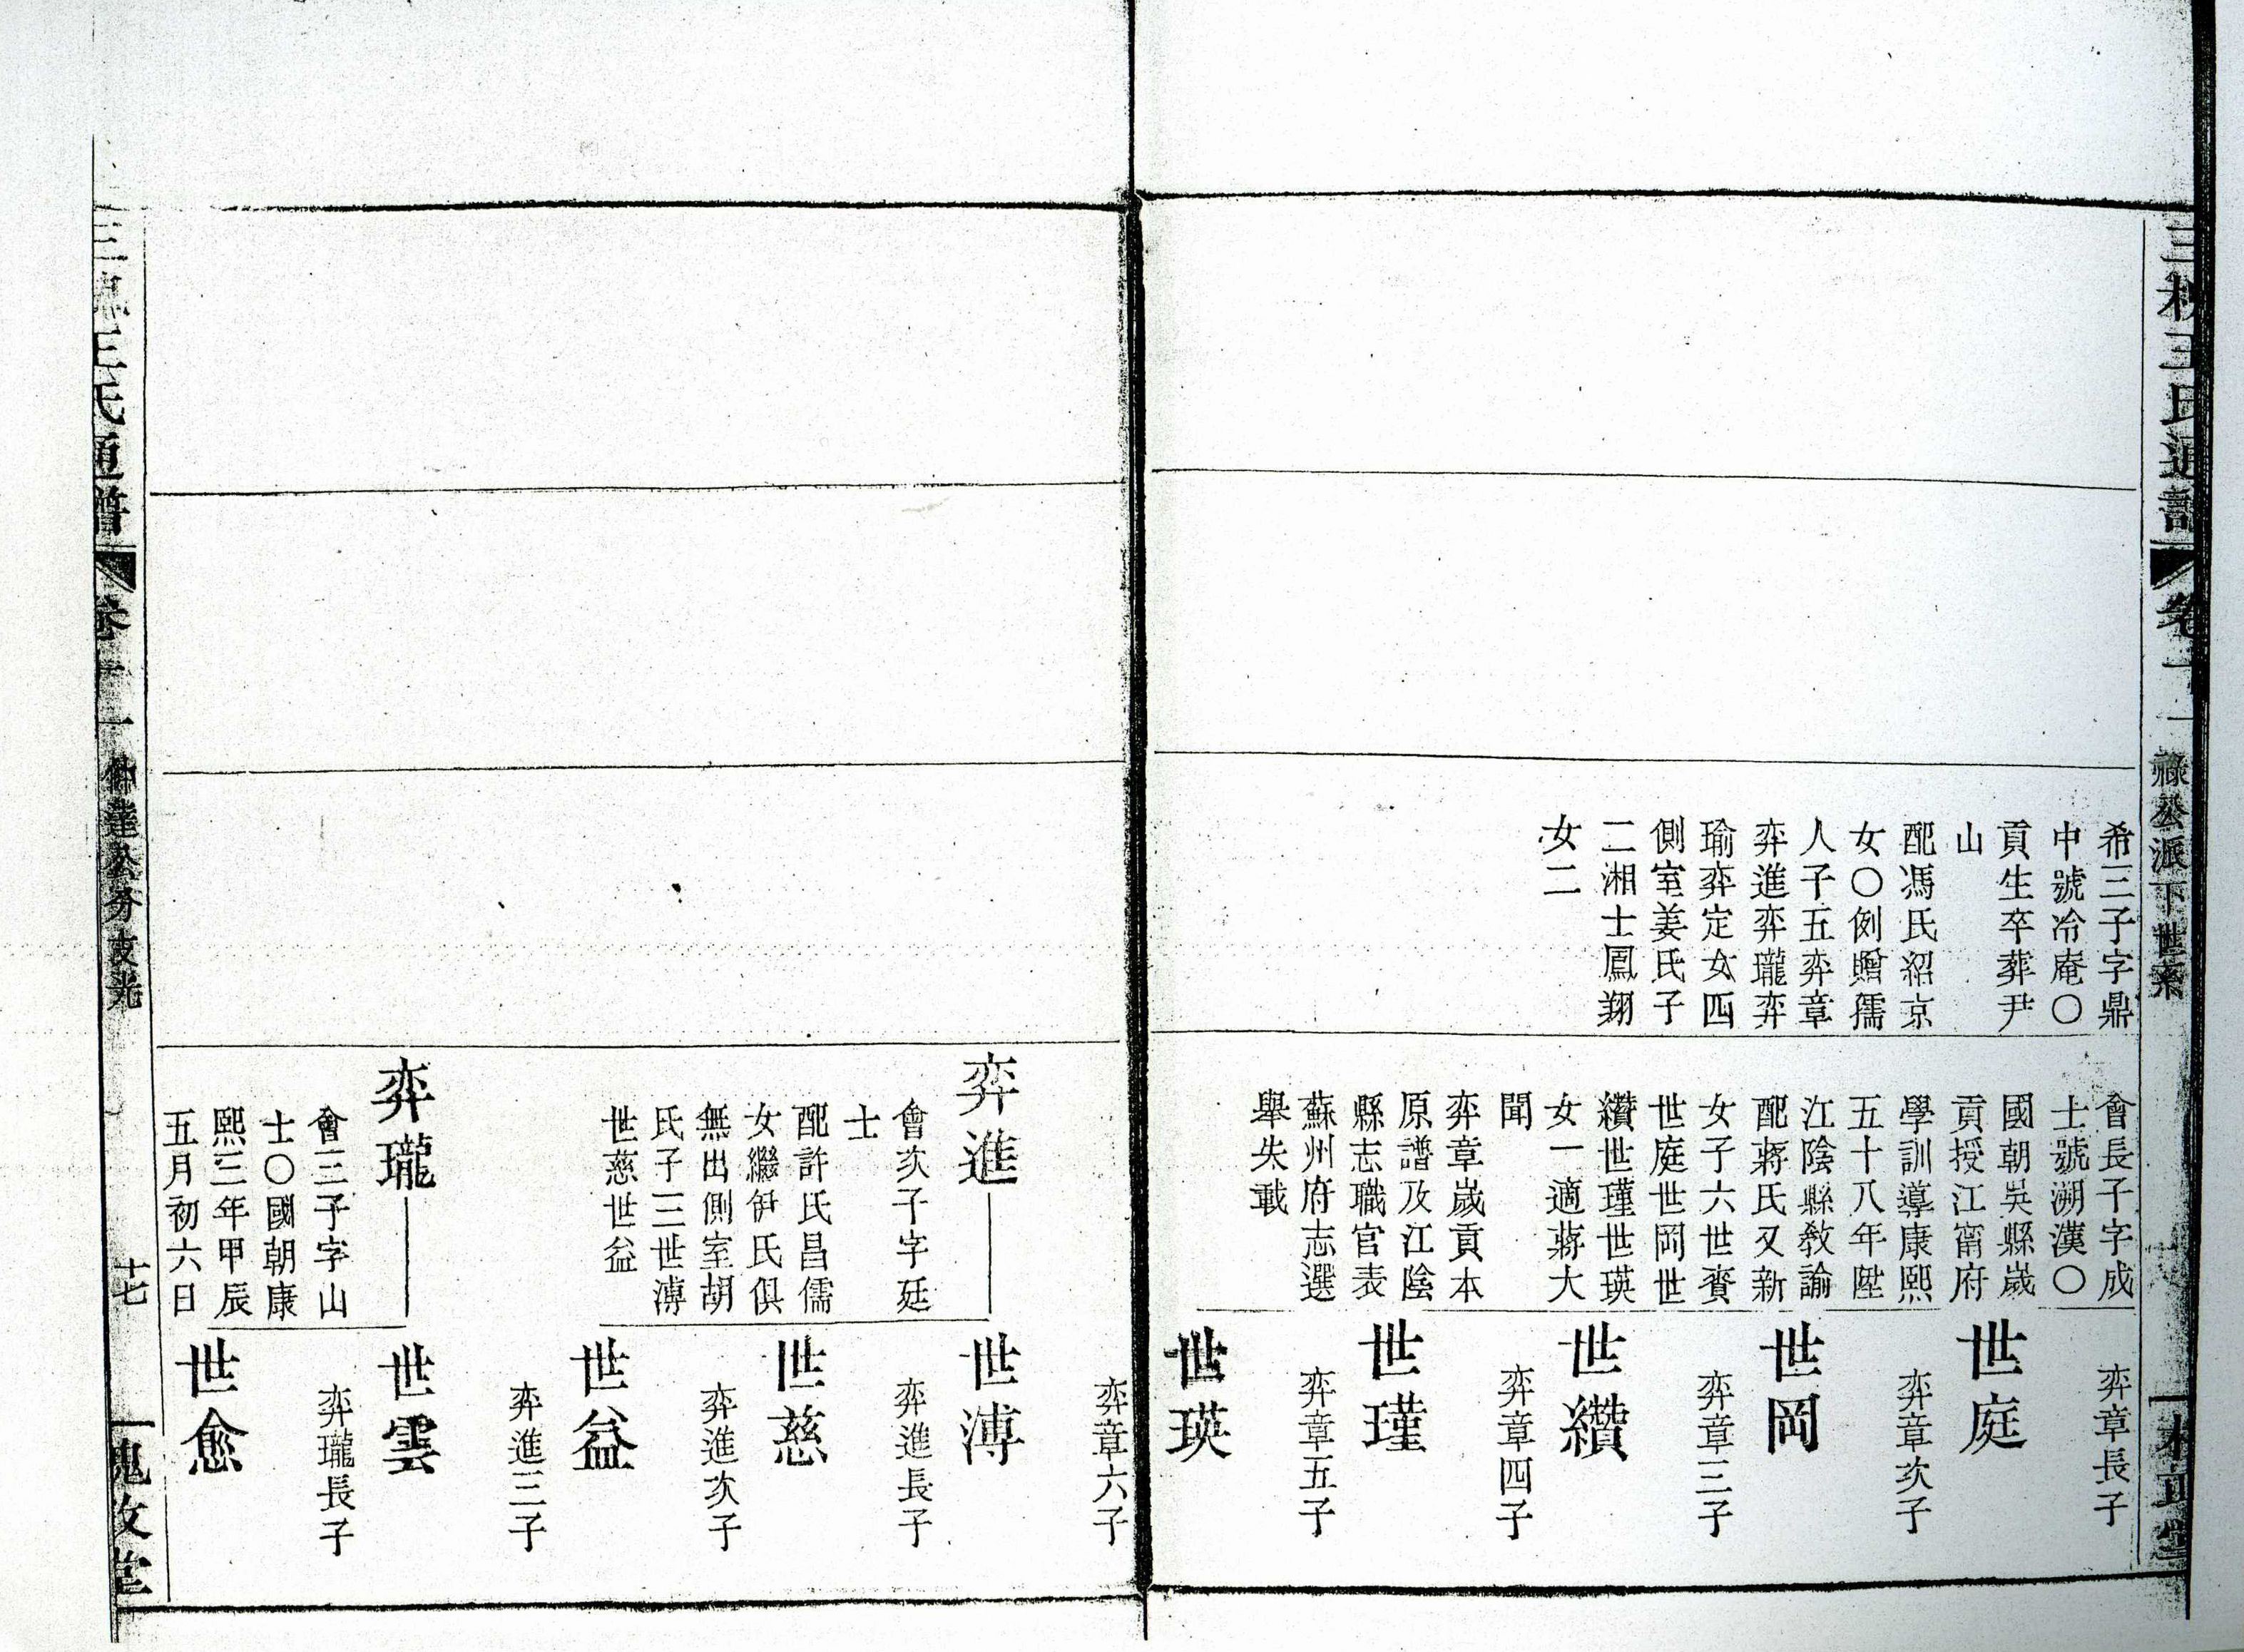 三槐王氏通譜
卷十一
祿公派下世系
槐政堂
希三子字鼎
中號冷庵〇
貢生卒葬尹
山
配馮氏紹京
女〇例贈孺
人子五弈章
弈進弈瓏弈
瑜弈定女四
側室姜氏子
二湘士鳳翔
女二
會長子字成
士號溯漢〇
國朝吳縣歲
貢授江甯府
學訓導康熙
五十八年陞
江陰縣教諭
配蔣氏又新
女子六世賡
世庭世岡世
纘世瑾世瑛
女一適蔣大
聞
弈章歲貢本
原譜及江陰
縣志職官表
蘇州府志選
舉失載
弈章長子
世庭
弈章次子
世岡
弈章三子
世纘
弈章四子
世瑾
弈章五子
世瑛
弈章六子
弈進
會次子字廷
士
配許氏昌儒
女繼伊氏俱
無出側室胡
氏子三世溥
世慈世益
弈瓏
會三子字山
士〇國朝康
熙三年甲辰
五月初六日
世溥
弈進長子
世慈
弈進次子
世益
弈進三子
世雲
弈瓏長子
世愈
三槐王氏通譜
卷十一
仲達公分支光
十七
槐政堂